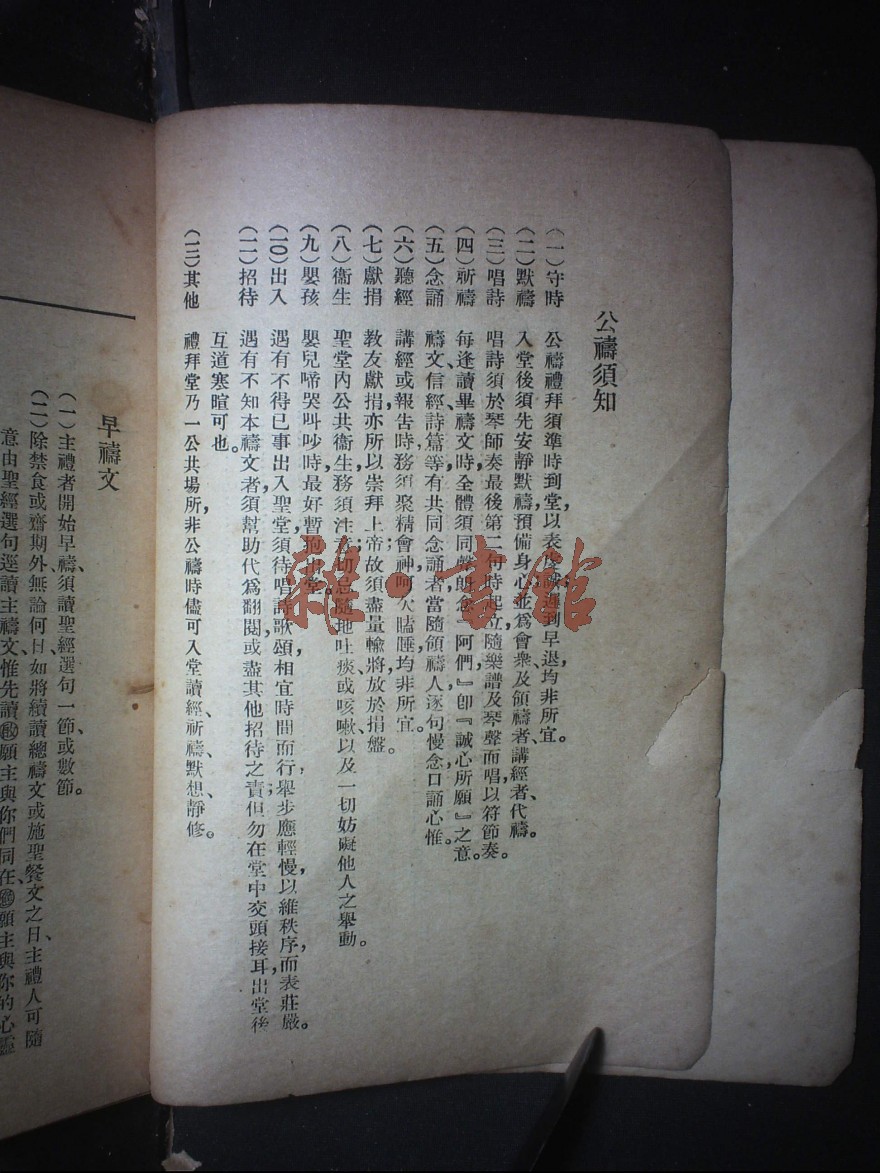 公禱須知
(一)守時 公禱禮拜須準時到堂,以表虔誠;遲到早退,均非所宜。
(二)默禱 入堂後須先安靜默禱,預備身心;並爲會衆及領禱者、講經者、代禱。
(三)唱詩 唱詩須於琴師奏最後第二句時起立,隨樂譜及琴聲而唱,以符節奏。
(四)祈禱 每逢讀畢禱文時,全體須同聲朗念『阿們』卽『誠心所願』之意。
(五)念誦 禱文、信經、詩篇等有共同念誦者,當隨領禱人逐句慢念,口誦心惟。
(六)聽經 講經或報告時,務須聚精會神,呵欠瞌睡,均非所宜。
(七)獻捐 教友獻捐,亦所以崇拜上帝;故須盡量輸將,放於捐盤。
(八)衞生 聖堂內公共衞生,務須注意;切忌隨地吐痰、或咳嗽、以及一切妨礙他人之舉動。
(九)嬰孩 嬰兒啼哭叫吵時,最好暫抱出堂。
(一〇)出入 遇有不得已事出入聖堂,須待唱詩歌頌相宜時間而行;舉步應輕慢,以維秩序,而表莊嚴。
(一一)招待 遇有不知本禱文者,須幫助代爲翻閱,或盡其他招待之責;但勿在堂中交頭接耳;出堂後
互道寒暄可也。
(一二)其他 禮拜堂乃一公共場所,非公禱時,儘可入堂讀經、祈禱、默想、靜修。
早禱文
(一)主禮者開始早禱、須讀聖經選句一節、或數節。
(二)除禁食或齋期外、無論何日、如將續讀總禱文或施聖餐文之日、主禮人可隨
意由聖經選句逕讀主禱文、惟先讀 願主與你們同在、 願主與你的心靈
雜·書館